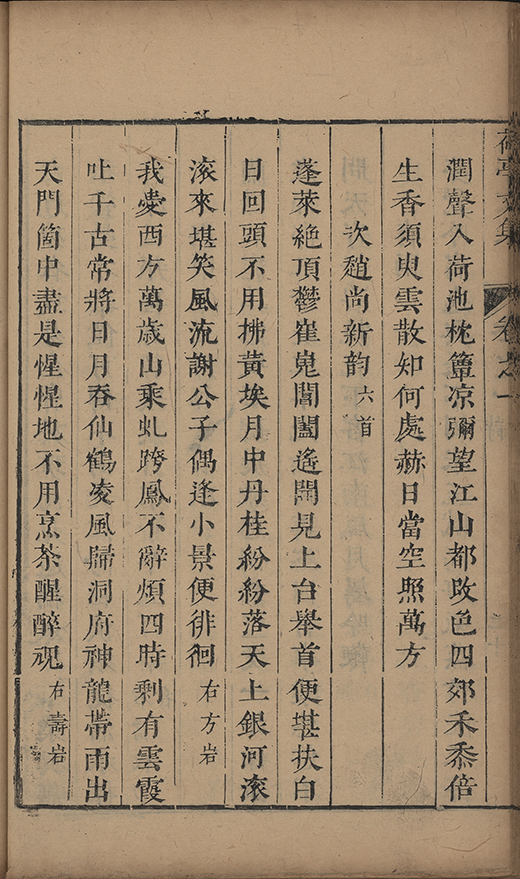 荷亭文集 卷之一
潤聲入荷池枕簟凉彌望江山都改色四郊禾黍倍
生香須臾雲散知何處赫日當空照萬方
次趙尚新韵六首
蓬萊絶頂鬱崔嵬閶闔遙開見上台舉首便堪扶白
日回頭不用拂黃埃月中丹桂紛紛落天上銀河滚
滚來堪笑風流謝公子偶逢小景便徘徊右方岩
我愛西方萬歲山乘虬跨鳳不辭煩四時剩有雲霞
吐千古常將日月吞仙鶴凌風歸洞府神龍帶雨出
天門箇中盡是惺惺地不用烹茶醒醉視右壽岩